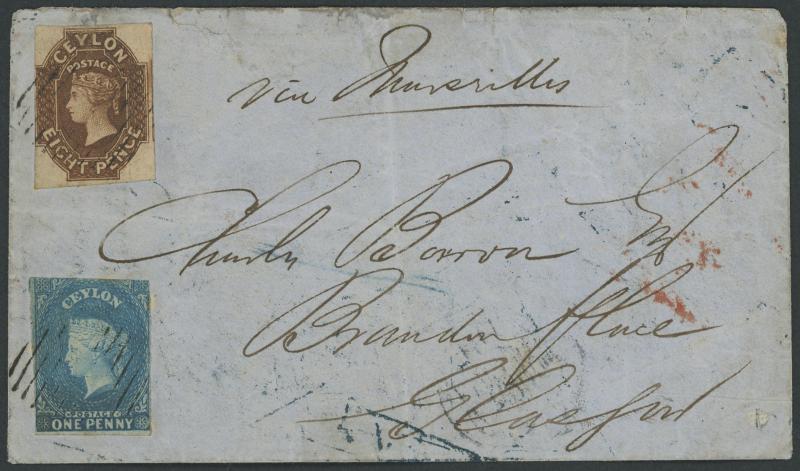 CEYLON
POSTAGE
EIGHT PENCE
via Marseilles
Charles Borron Esq
Brandon Place
Glasgow
CEYLON
POSTAGE
ONE PENNY